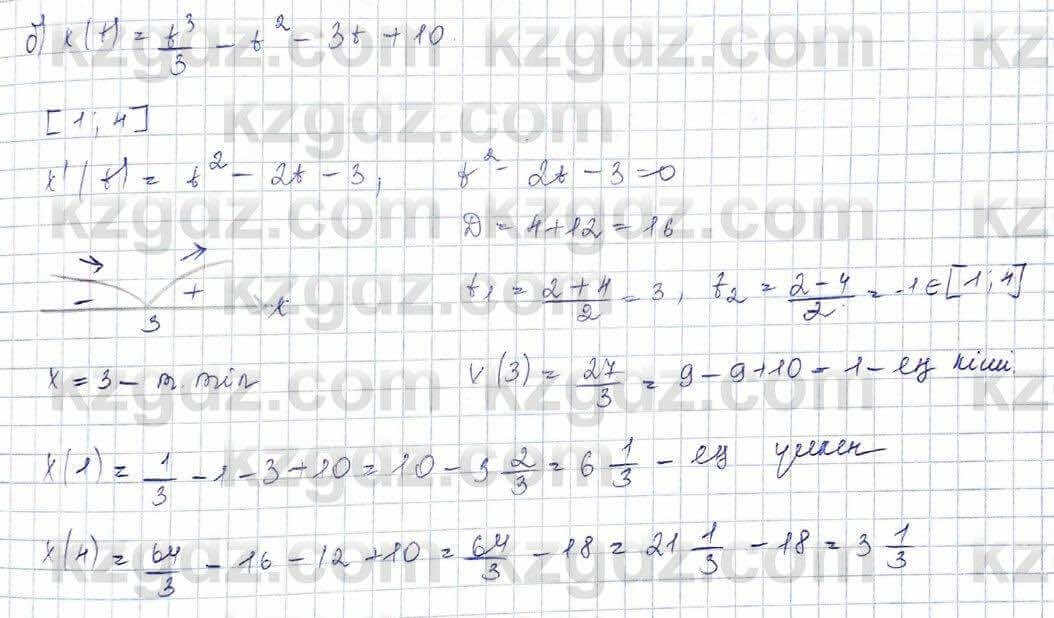 б) x(t) = t³/3 - t² - 3t + 10
[1; 4]
x'(t) = t² - 2t - 3; t² - 2t - 3 = 0
D = 4 + 12 = 16
- 3 + x
t₁ = (2 + 4)/2 = 3, t₂ = (2 - 4)/2 = -1 ∈ [1; 4]
x = 3 - т. min v(3) = 27/3 = 9 - 9 + 10 - 1 - ең кіші
x(1) = 1/3 - 1 - 3 + 10 = 10 - 3 2/3 = 6 1/3 - ең үлкен
x(4) = 64/3 - 16 - 12 + 10 = 64/3 - 18 = 21 1/3 - 18 = 3 1/3
kzgdz.com